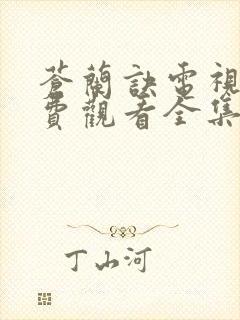 蒼蘭訣電視
費觀看全集
丁山河